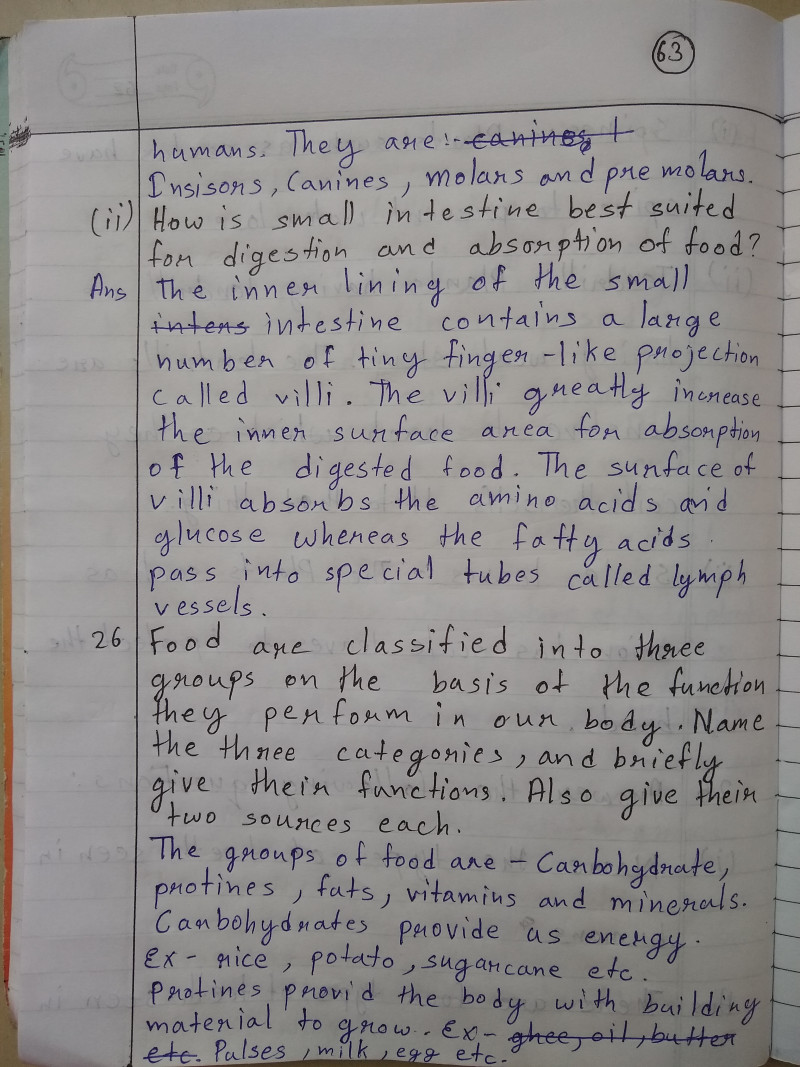 63
humans. They are :- canines, t
Insisors, Canines, molars and pre molars.
(ii) How is small intestine best suited
for digestion and absorption of food?
Ans The inner lining of the small
intens intestine contains a large
number of tiny finger-like projection
called villi. The villi greatly increase
the inner surface area for absorption
of the digested food. The surface of
villi absorbs the amino acids and
glucose whereas the fatty acids
pass into special tubes called lymph
vessels.
26 Food are classified into three
groups on the basis of the function
they perform in our body. Name
the three categories, and briefly
give their functions. Also give their
two sources each.
The groups of food are - Carbohydrate,
protines, fats, vitamins and minerals.
Carbohydrates provide us energy.
Ex - rice, potato, sugarcane etc.
Protines provid the body with building
material to grow. Ex - ghee, oil, butter
etc. Pulses, milk, egg etc.